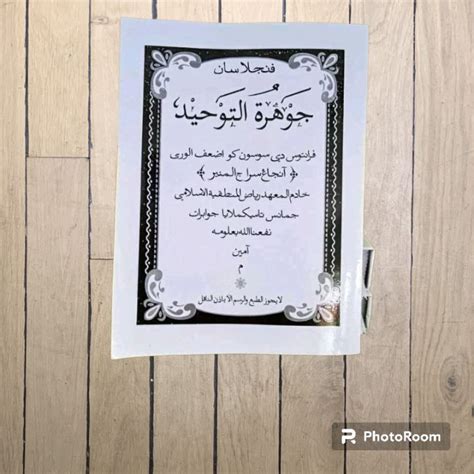 فنجلاسان
جَوْهَرَةُ التَّوْحِيْدِ
فرانتوس دي سوسون كو اضعف الورى
﴿ آنجاغ سراج المنير ﴾
خادم المعهد رياض المنطقية الاسلامي
جمانس تاسيكملايا جوابرات
نفعنا الله بعلومه
آمين
م
لا يجوز الطبع والرسم الا باذن الناقل
PhotoRoom